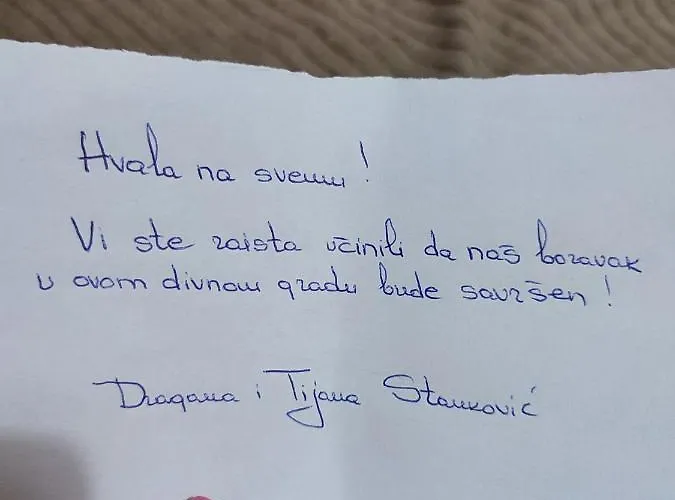 Hvala na svemu!
Vi ste zaista učinili da naš boravak
u ovom divnom gradu bude savršen!
Dragana i Tijana Stanković